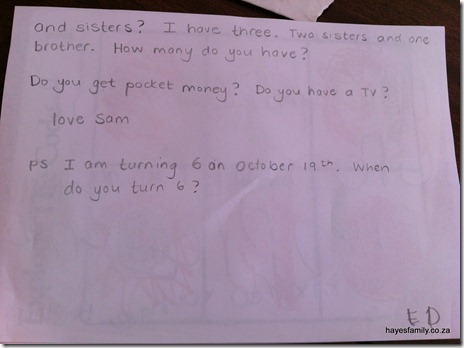 and sisters? I have three. Two sisters and one
brother. How many do you have?
Do you get pocket money? Do you have a TV?
love Sam
PS I am turning 6 on October 19th. When
do you turn 6?
E D
hayesfamily.co.za